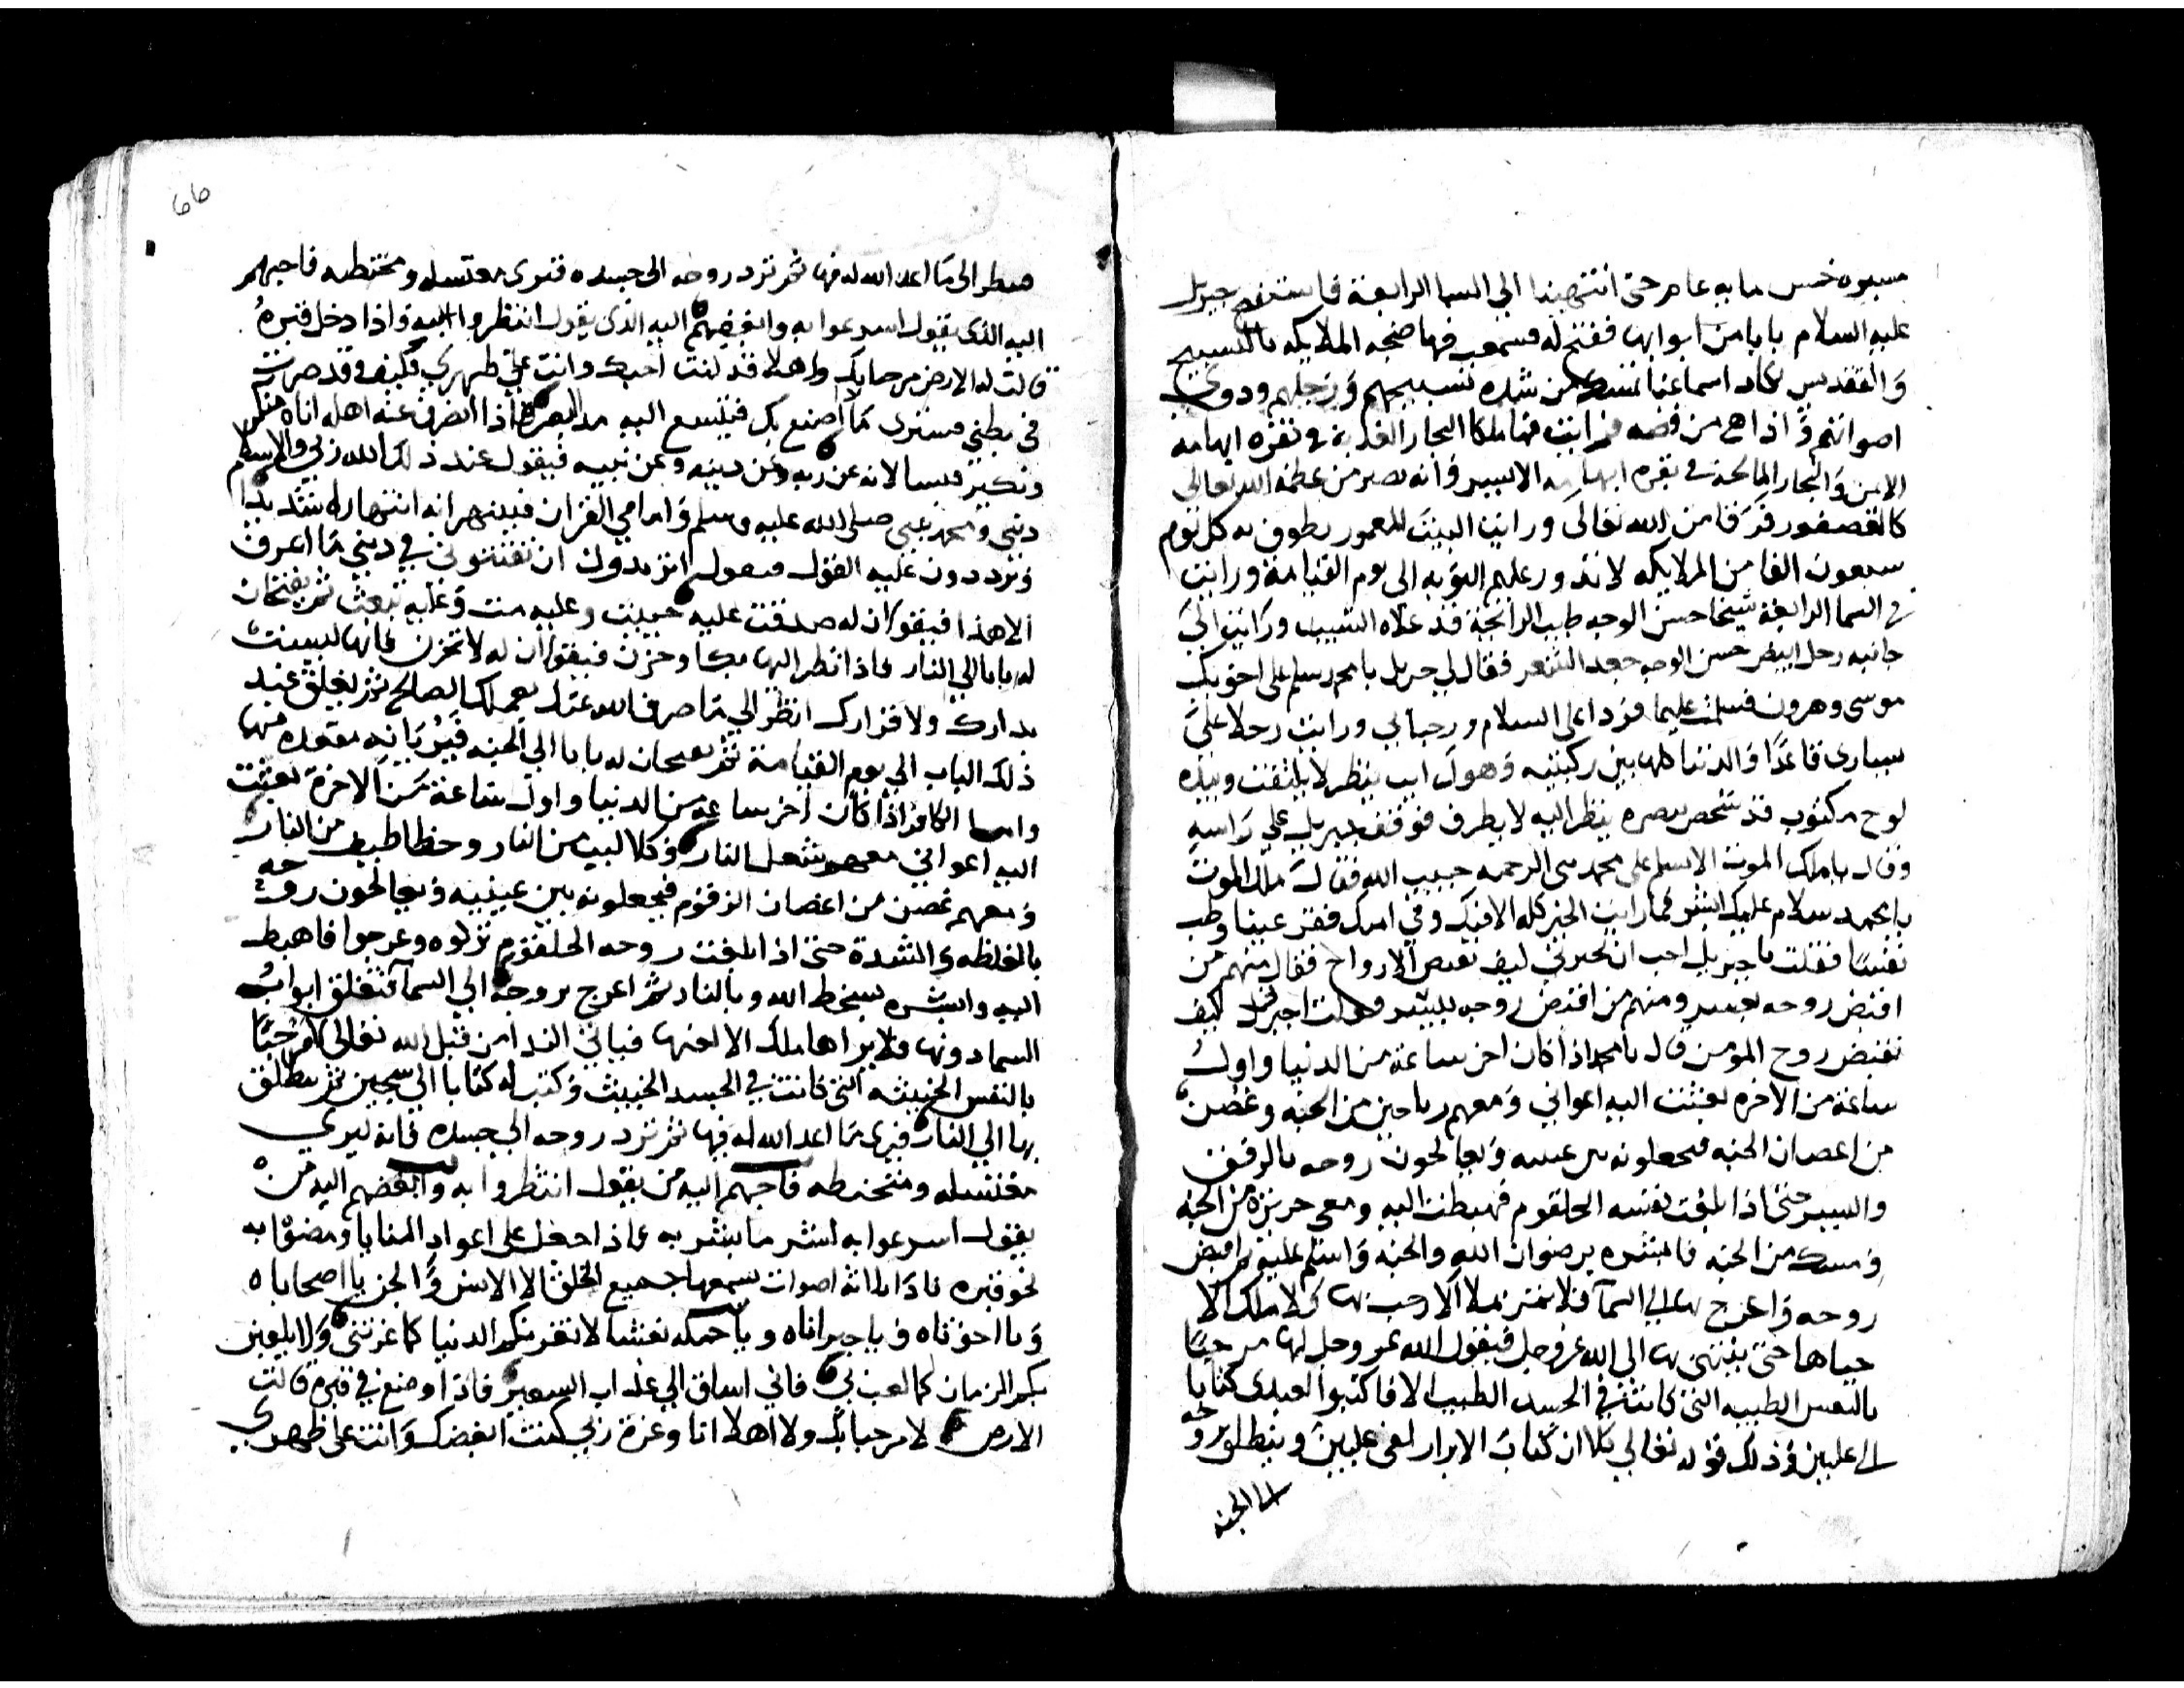 مسيره خمس مايه عام حتى انتهينا الى السما الرابعة فاستفتح جبريل
عليه السلام بابا من ابوابها ففتح له فسمعت فيها ضجه الملايكه بالتسبيح
والتقديس تكاد اسماعنا من شده تسبيحهم وزجلهم ودوي
اصواتهم واذا هي من فضه فرايت فيها ملكا البحار العذبة في نقره ابهامه
الايمن والبحار المالحة في نقره ابهامه الايسر وانه يصير من عظمة الله تعالى
كالعصفور فرقا من الله تعالى ورايت البيت المعمور يطوف به كل يوم
سبعون الفا من الملايكه لا تدور عليهم النوبه الى يوم القيامة ورايت
في السما الرابعة شيخا حسن الوجه طيب الرايحة قد علاه الشيب ورايت الى
جانبه رجل ابيض حسن الوجه جعد الشعر فقال لي جبريل يا محمد سلم على اخويك
موسى وهرون فسلمت عليهما فردا على السلام ورحبا بي ورايت رجلا على
قاعدا والدنيا كلها بين ركبتيه وهو ينظر لا يلتفت وبيده
لوح مكتوب قد شخص بصره ينظر اليه لا يطرف فوقف جبريل على راسه
وقال يا ملك الموت الا تسلم على محمد نبي الرحمه حبيب الله فقال ملك الموت
يا محمد سلام عليك ابشر فما رايت الخير كله الا فيك وفي امتك فقر عينا وطب
نفسا فقلت يا جبريل احب ان تخبرني كيف تقبض الارواح فقال منهم من
اقبض روحه بعسر ومنهم من اقبض روحه بيسر فقلت اخبرني كيف
تقبض روح المومن قال يا محمد اذا كان اخر ساعة من الدنيا واول
ساعة من الاخره بعثت اليه اعواني ومعهم رياحين من الجنه وغصن
من اغصان الجنه فيجعلونه بين عينيه ويعالجون روحه بالرفق
واليسر حتى اذا بلغت نفسه الحلقوم فهبطت اليه ومعي حريرة من الجنه
ومسك من الجنه فابشره برضوان الله والجنه واسلم عليه ثم اقبض
روحه واعرج بها الى السما فلا تمر بملا الا رحب بها ولا ملك الا
حياها حتى ينتهي بها الى الله عز وجل فيقول الله عز وجل لها مرحبا
بالنفس الطيبه التي كانت في الجسد الطيب الا فاكتبوا لعبدى كتابا
الى عليين وذلك قوله تعالى كلا ان كتاب الابرار لفي عليين وينطلق بروحه
الى الجنه
66
فينظر الى ما اعد الله له فيها ثم ترد روحه الى جسده فيرى مغتسله ومحنطه فاحبهم
اليه الذى يقول اسرعوا به وابغضهم اليه الذى يقول انتظروا به واذا دخل قبره
قالت له الارض مرحبا بك واهلا قد كنت احبك وانت على ظهري فكيف وقد صرت
في بطني فسترى ما اصنع بك فيتسع اليه مد البصر فاذا انصرف عنه اهله اتاه منكر
ونكير فيسالانه عن ربه وعن دينه وعن نبيه فيقول عند ذلك الله ربي والاسلام
ديني ومحمد نبيي صلى الله عليه وسلم وامامي القران فينهرانه انتهارا شديدا
ويرددون عليه القول فيقول اتريدون ان تفتنوني في ديني ما اعرف
الا هذا فيقولان له صدقت عليه حييت وعليه مت وعليه تبعث ثم يفتحان
له بابا الى النار فاذا نظر اليها بكا وحزن فيقولان له لا تحزن فانها ليست
بدارك ولا قرارك انظر الى ما صرف الله عنك بعملك الصالح ثم يغلق عند
ذلك الباب الى يوم القيامة ثم يفتحان له بابا الى الجنه فيريانه مقعده منها
واما الكافر اذا كان اخر ساعة من الدنيا واول ساعة من الاخرة بعثت
اليه اعواني معهم شعل النار وكلاليب من النار وحظاطيف من النار
ومعهم غصن من اغصان الزقوم فيجعلونه بين عينيه ويعالجون روحه
بالغلظه والشدة حتى اذا بلغت روحه الحلقوم نزلوه وعرجوا فاهبط
اليه وابشره بسخط الله وبالنار ثم اعرج بروحه الى السما فتغلق ابواب
السما دونها فلا يراها ملك الا لعنها فياتي الندا من قبل الله تعالى لا مرحبا
بالنفس الخبيثه التي كانت في الجسد الخبيث وكتب له كتابا الى سجين ثم ينطلق
بها الى النار فيرى ما اعد الله له فيها ثم ترد روحه الى جسده فانه ليرى
مغتسله ومحنطه فاحبهم اليه من يقول انتظروا به وابغضهم اليه من
يقول اسرعوا به لشر ما يبشر به فاذا احتمل على اعواد المنايا ومضوا به
نحو قبره نادا ثلاثة اصوات يسمعها جميع الخلق الا الانس والجن يا اصحاباه
ويا اخوتاه ويا جيراناه ويا حمله نعشاه لا تغرنكم الدنيا كما غرتني ولا يلعبن
بكم الزمان كما لعب بي فاني اساق الى عذاب السعير فاذا وضع في قبره قالت
الارض لا مرحبا بك ولا اهلا انا وعزة ربي كنت ابغضك وانت على ظهري